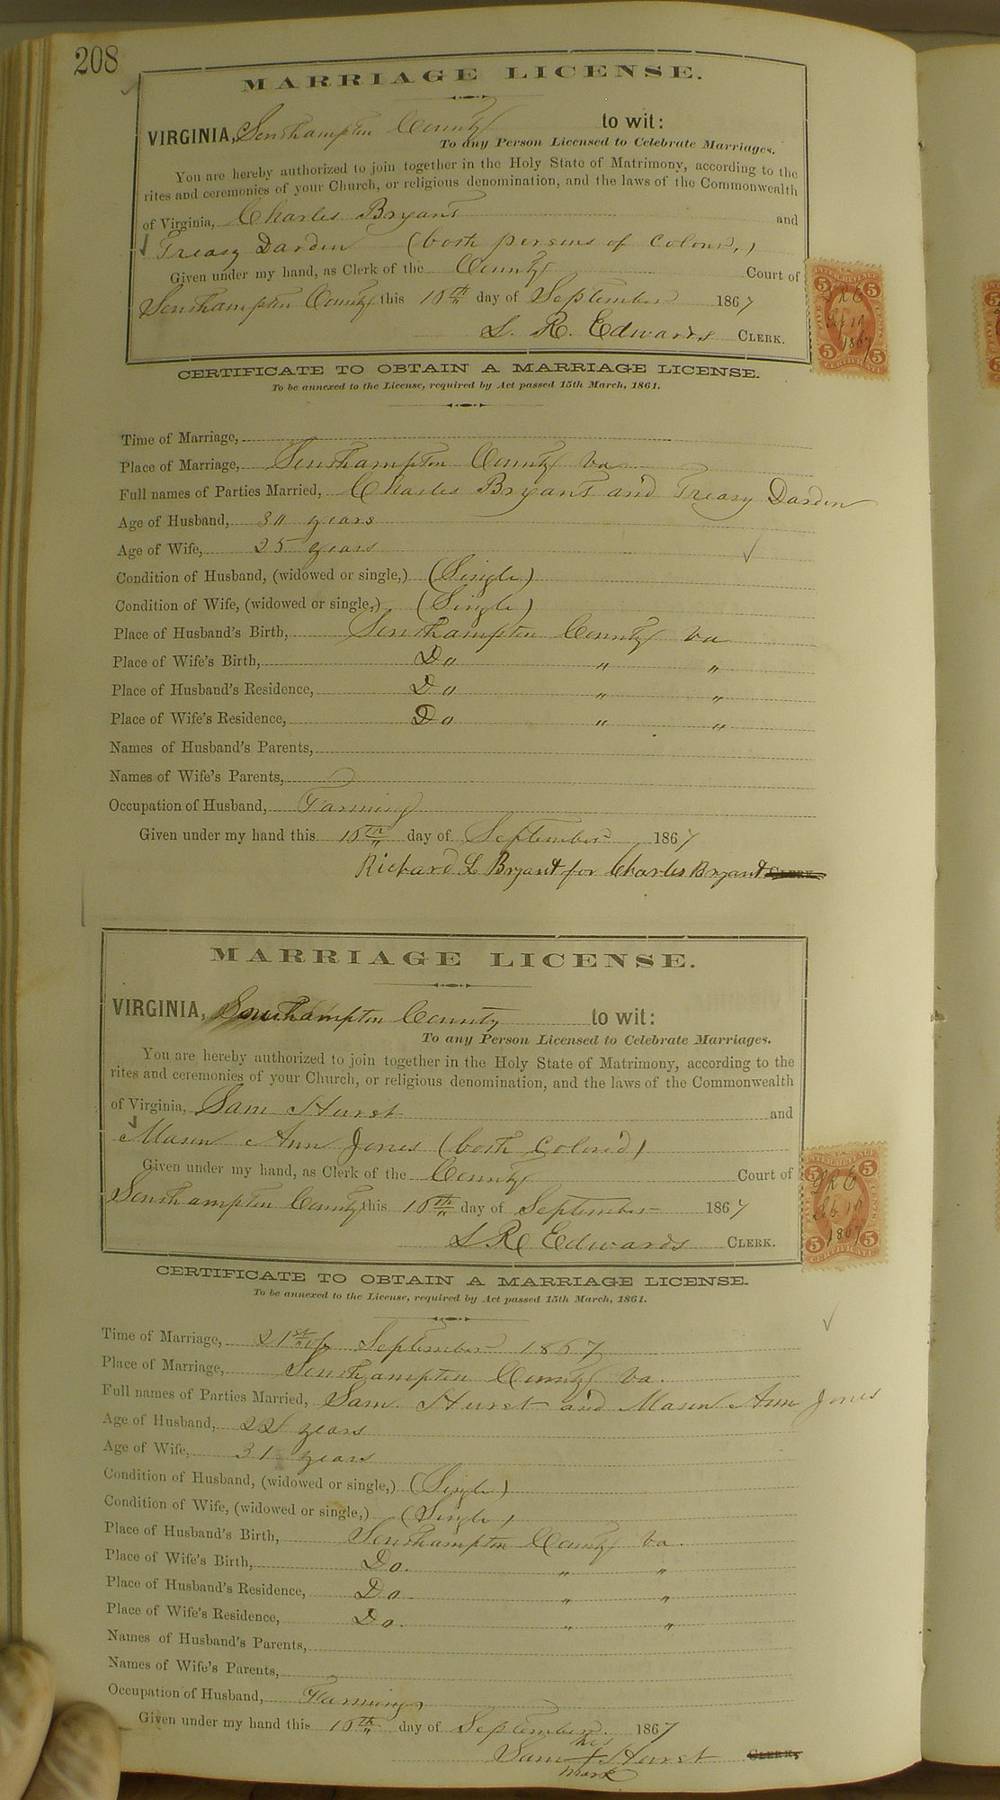 208
MARRIAGE LICENSE.
VIRGINIA, Southampton County to wit:
To any Person Licensed to Celebrate Marriages.
You are hereby authorized to join together in the Holy State of Matrimony, according to the
rites and ceremonies of your Church, or religious denomination, and the laws of the Commonwealth
of Virginia, Charles Bryant and
Treasy Darden (both persons of colour.)
Given under my hand, as Clerk of the County Court of
Southampton County this 10th day of September 1867
L. R. Edwards CLERK.
5 5
LRE
Sep 10
1867
5 5
CERTIFICATE
CERTIFICATE TO OBTAIN A MARRIAGE LICENSE.
To be annexed to the License, required by Act passed 15th March, 1861.
Time of Marriage,
Place of Marriage, Southampton County Va
Full names of Parties Married, Charles Bryant and Treasy Darden
Age of Husband, 30 years
Age of Wife, 25 years
Condition of Husband, (widowed or single,) (Single)
Condition of Wife, (widowed or single,) (Single)
Place of Husband's Birth, Southampton County Va
Place of Wife's Birth, Do " "
Place of Husband's Residence, Do " "
Place of Wife's Residence, Do " "
Names of Husband's Parents,
Names of Wife's Parents,
Occupation of Husband, Farming
Given under my hand this 10th day of September 1867
Richard L Bryant for Charles Bryant CLERK.
MARRIAGE LICENSE.
VIRGINIA, Southampton County to wit:
To any Person Licensed to Celebrate Marriages.
You are hereby authorized to join together in the Holy State of Matrimony, according to the
rites and ceremonies of your Church, or religious denomination, and the laws of the Commonwealth
of Virginia, Sam Hurst and
Mason Ann Jones (both Colored)
Given under my hand, as Clerk of the County Court of
Southampton County this 10th day of September 1867
L R Edwards CLERK.
5 5
LRE
Sep 10
1867
5 5
CERTIFICATE
CERTIFICATE TO OBTAIN A MARRIAGE LICENSE.
To be annexed to the License, required by Act passed 15th March, 1861.
Time of Marriage, 21st of September 1867
Place of Marriage, Southampton County Va.
Full names of Parties Married, Sam Hurst and Mason Ann Jones
Age of Husband, 22 years
Age of Wife, 31 years
Condition of Husband, (widowed or single,) (Single)
Condition of Wife, (widowed or single,) (Single)
Place of Husband's Birth, Southampton County Va.
Place of Wife's Birth, Do. " "
Place of Husband's Residence, Do. " "
Place of Wife's Residence, Do. " "
Names of Husband's Parents,
Names of Wife's Parents,
Occupation of Husband, Farming
Given under my hand this 10th day of September 1867
his
Sam + Hurst CLERK.
mark